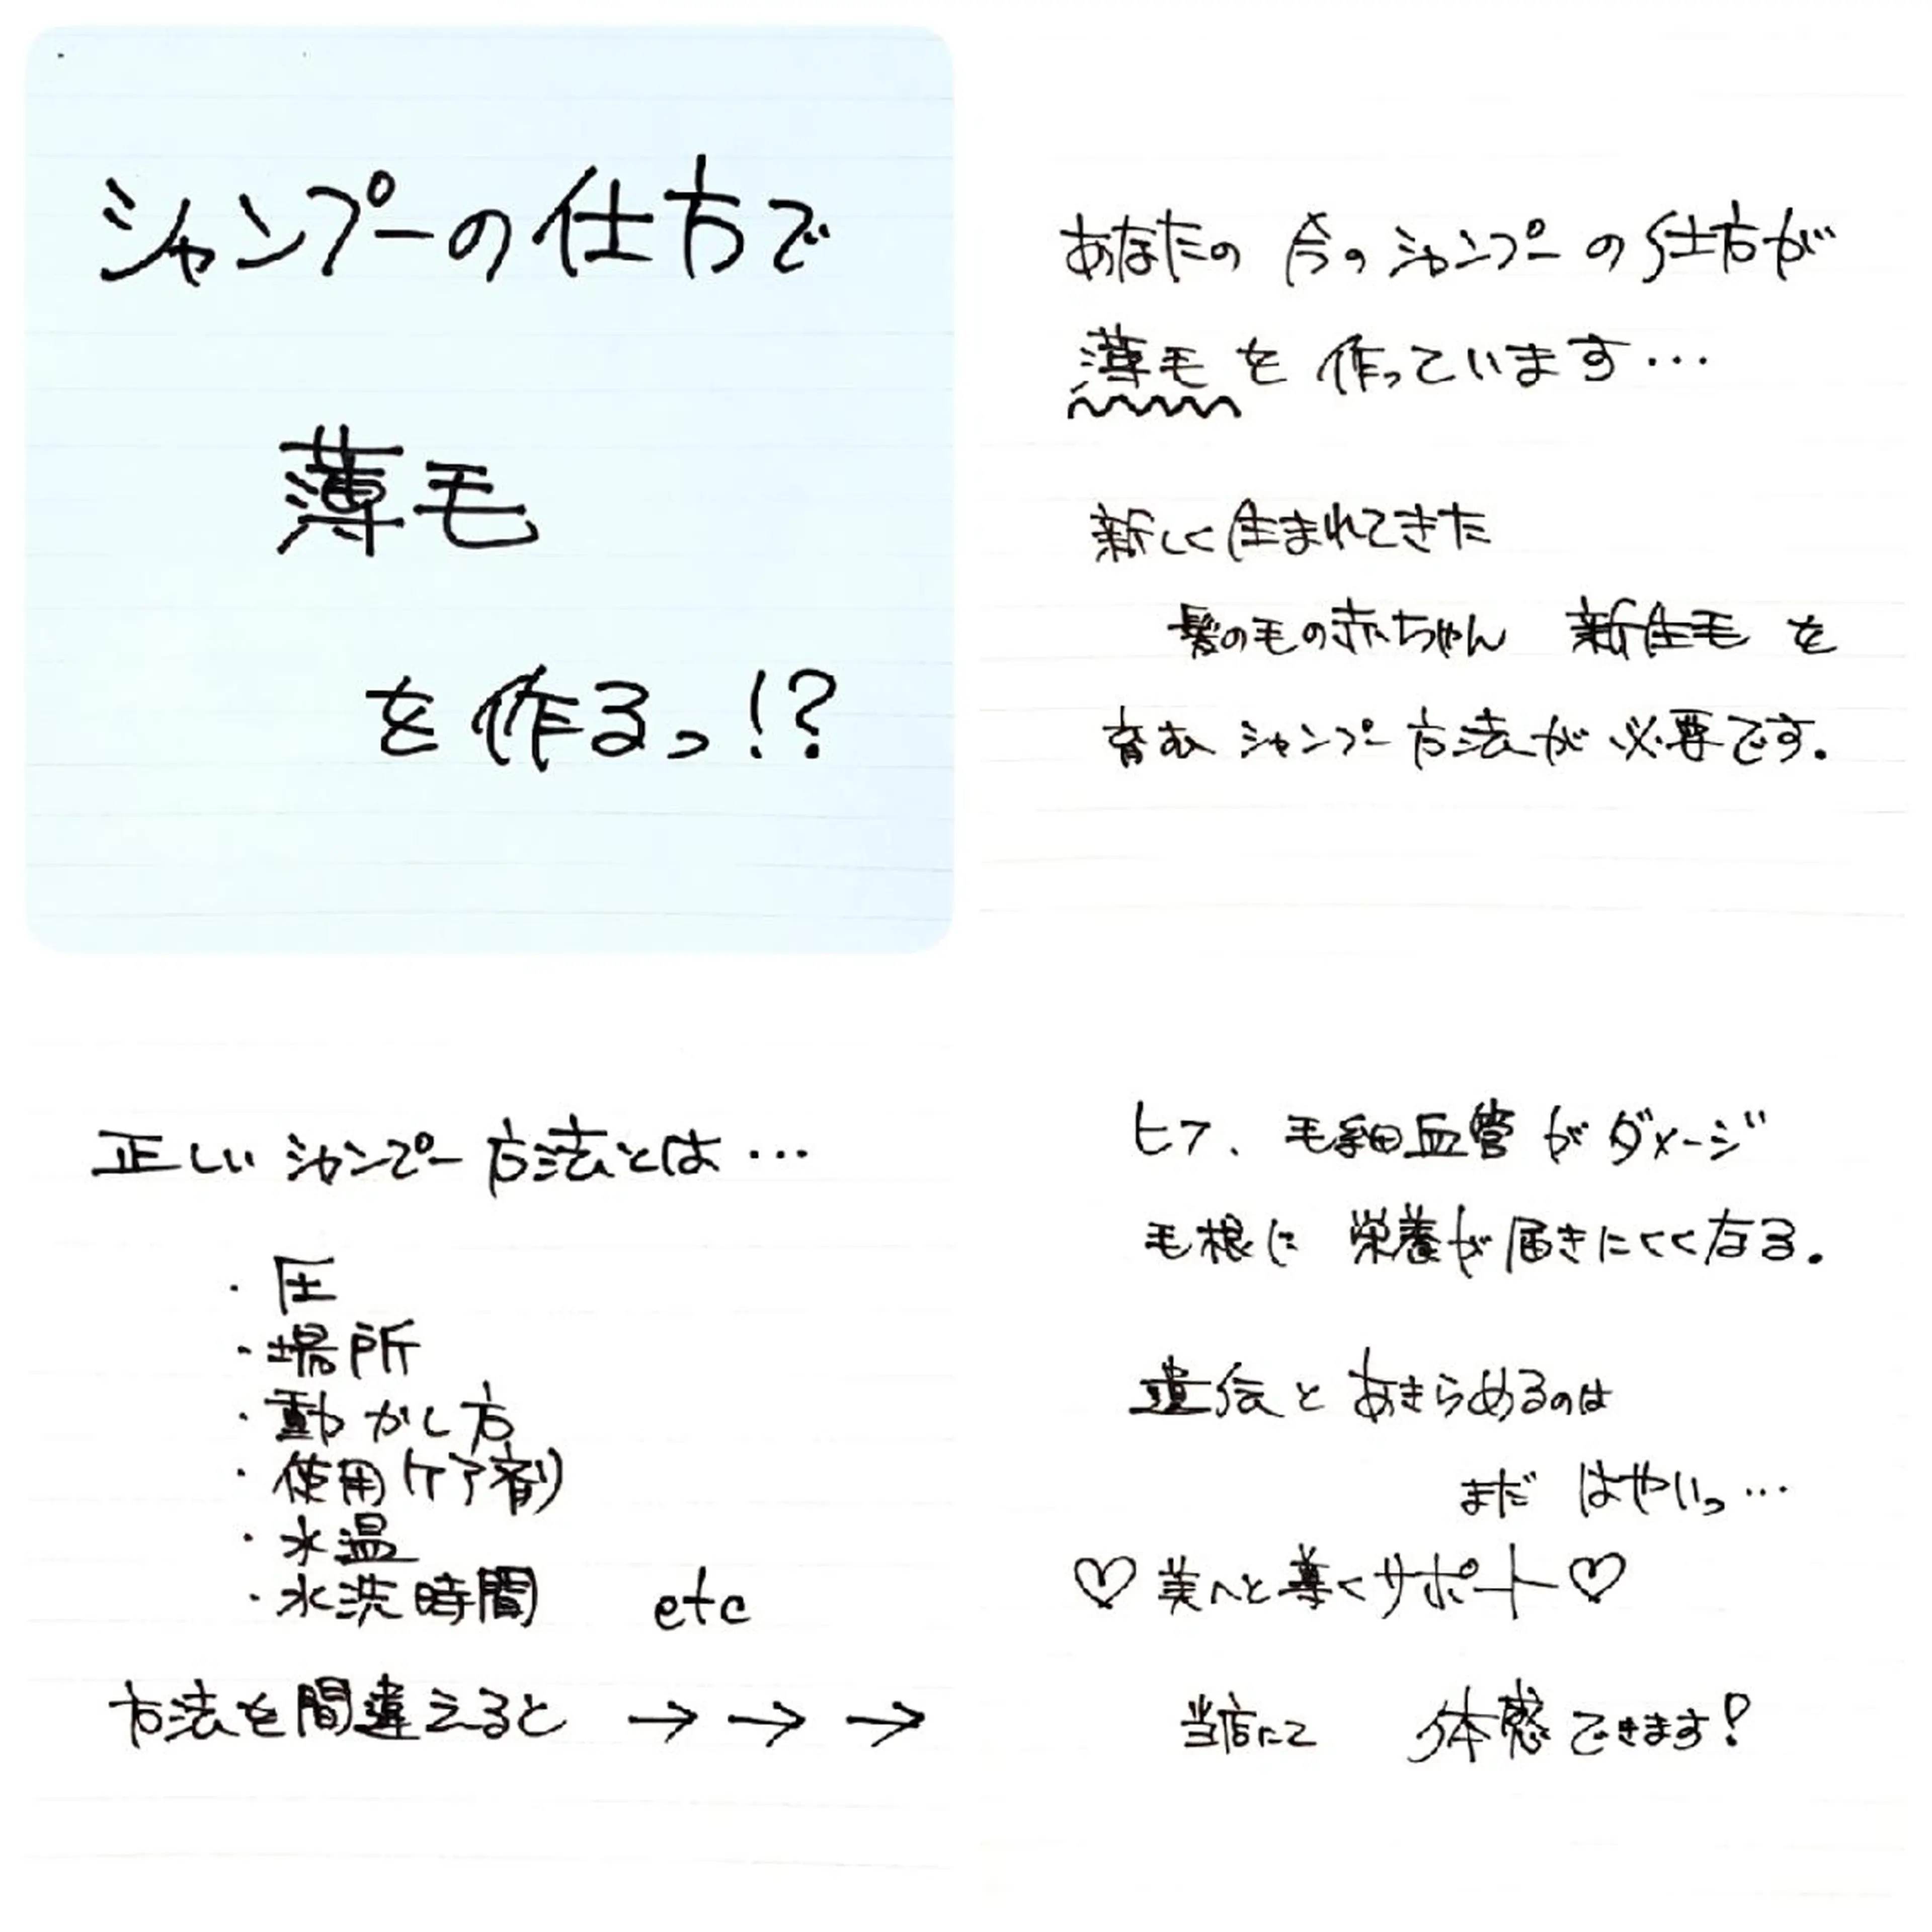 シャンプーの仕方で
薄毛
を作るっ!?
あなたの 今の シャンプーの仕方が
薄毛を 作っています…
新しく生まれてきた
髪の毛の赤ちゃん 新生毛 を
育む シャンプー方法が 必要です。
正しい シャンプー方法とは…
・圧
・場所
・動かし方
・使用(ケア剤)
・水温
・水洗時間 etc
方法を間違えると → → →
ヒフ、毛細血管 が ダメージ
毛根に 栄養が 届きにくくなる。
遺伝と あきらめるのは
まだ はやいっ…
♡ 美へと導くサポート♡
当店にて 体感できます!